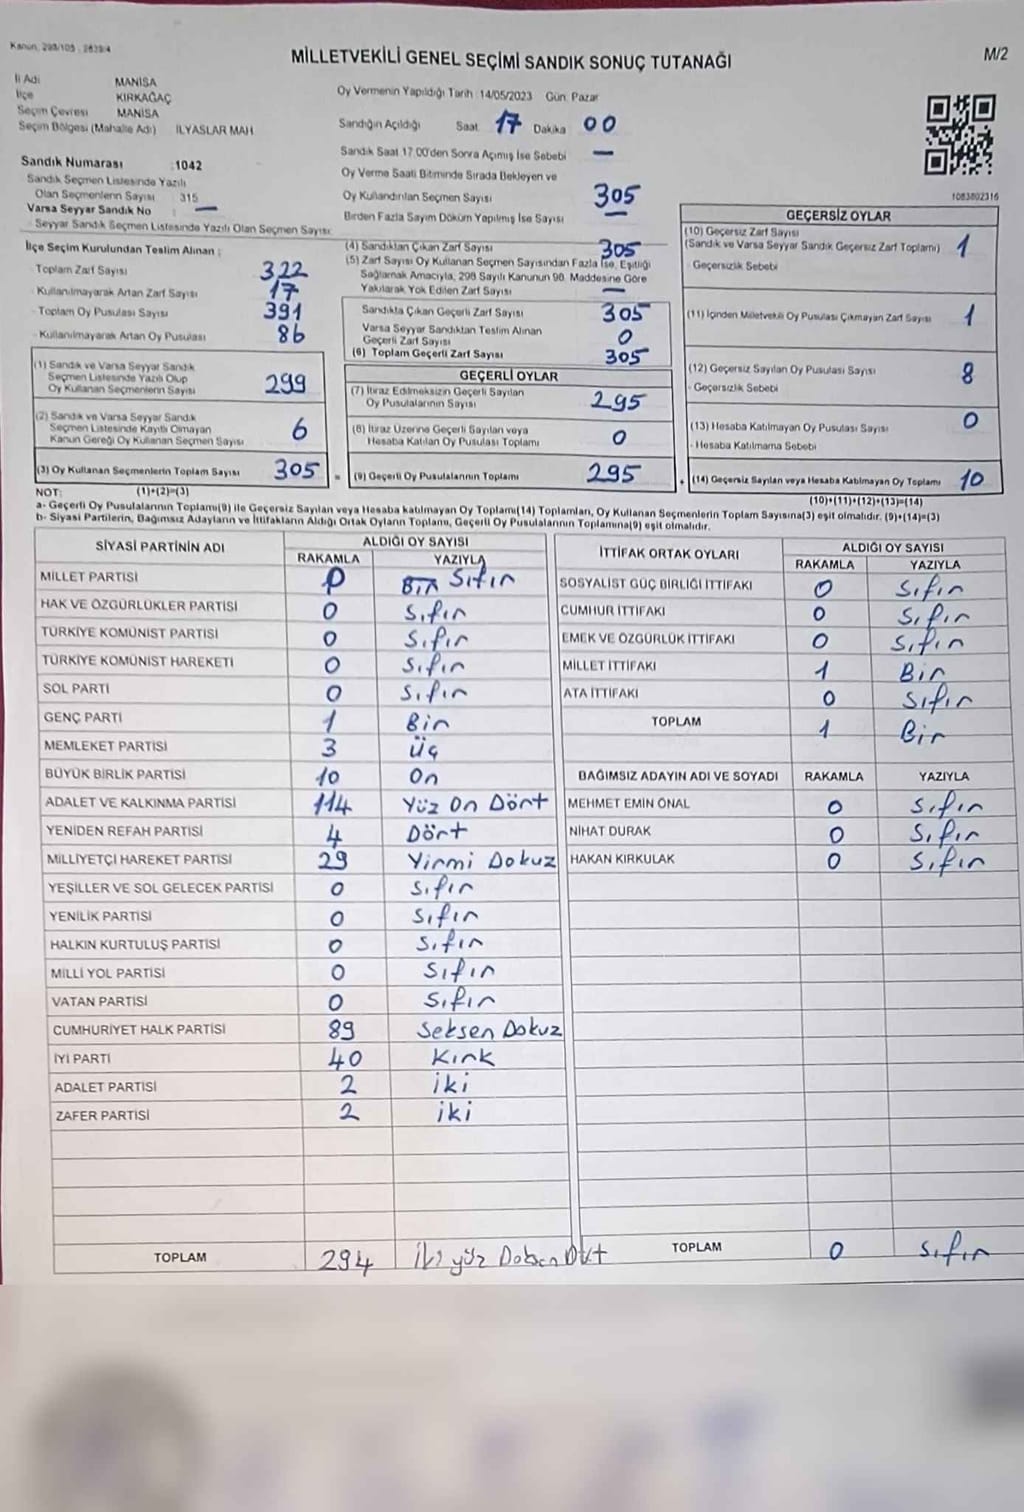 Kanun, 298/105 , 2839/4
MİLLETVEKİLİ GENEL SEÇİMİ SANDIK SONUÇ TUTANAĞI
M/2
İl Adı MANİSA
İlçe KIRKAĞAÇ
Seçim Çevresi MANİSA
Seçim Bölgesi (Mahalle Adı) İLYASLAR MAH
Sandık Numarası :1042
Sandık Seçmen Listesinde Yazılı
Olan Seçmenlerin Sayısı 315
Varsa Seyyar Sandık No : —
Seyyar Sandık Seçmen Listesinde Yazılı Olan Seçmen Sayısı:
Oy Vermenin Yapıldığı Tarih :14/05/2023 Gün: Pazar
Sandığın Açıldığı Saat 17 Dakika 00
Sandık Saat 17.00'den Sonra Açılmış İse Sebebi —
Oy Verme Saati Bitiminde Sırada Bekleyen ve
Oy Kullandırılan Seçmen Sayısı 305
Birden Fazla Sayım Döküm Yapılmış İse Sayısı —
1083802316
İlçe Seçim Kurulundan Teslim Alınan ;
Toplam Zarf Sayısı 322
Kullanılmayarak Artan Zarf Sayısı 17
Toplam Oy Pusulası Sayısı 391
Kullanılmayarak Artan Oy Pusulası 86
(1) Sandık ve Varsa Seyyar Sandık
Seçmen Listesinde Yazılı Olup
Oy Kullanan Seçmenlerin Sayısı 299
(2) Sandık ve Varsa Seyyar Sandık
Seçmen Listesinde Kayıtlı Olmayan
Kanun Gereği Oy Kullanan Seçmen Sayısı 6
(3) Oy Kullanan Seçmenlerin Toplam Sayısı 305
(4) Sandıktan Çıkan Zarf Sayısı 305
(5) Zarf Sayısı Oy Kullanan Seçmen Sayısından Fazla İse, Eşitliği
Sağlamak Amacıyla, 298 Sayılı Kanunun 98. Maddesine Göre
Yakılarak Yok Edilen Zarf Sayısı —
Sandıkta Çıkan Geçerli Zarf Sayısı 305
Varsa Seyyar Sandıktan Teslim Alınan
Geçerli Zarf Sayısı 0
(6) Toplam Geçerli Zarf Sayısı 305
GEÇERLİ OYLAR
(7) İtiraz Edilmeksizin Geçerli Sayılan
Oy Pusulalarının Sayısı 295
(8) İtiraz Üzerine Geçerli Sayılan veya
Hesaba Katılan Oy Pusulası Toplamı 0
= (9) Geçerli Oy Pusulalarının Toplamı 295
GEÇERSİZ OYLAR
(10) Geçersiz Zarf Sayısı
(Sandık ve Varsa Seyyar Sandık Geçersiz Zarf Toplamı) 1
Geçersizlik Sebebi
(11) İçinden Milletvekili Oy Pusulası Çıkmayan Zarf Sayısı 1
(12) Geçersiz Sayılan Oy Pusulası Sayısı 8
- Geçersizlik Sebebi
(13) Hesaba Katılmayan Oy Pusulası Sayısı 0
- Hesaba Katılmama Sebebi
+ (14) Geçersiz Sayılan veya Hesaba Katılmayan Oy Toplamı 10
NOT: (1)+(2)=(3) (10)+(11)+(12)+(13)=(14)
a- Geçerli Oy Pusulalarının Toplamı(9) ile Geçersiz Sayılan veya Hesaba katılmayan Oy Toplamı(14) Toplamları, Oy Kullanan Seçmenlerin Toplam Sayısına(3) eşit olmalıdır. (9)+(14)=(3)
b- Siyasi Partilerin, Bağımsız Adayların ve İttifakların Aldığı Ortak Oyların Toplamı, Geçerli Oy Pusulalarının Toplamına(9) eşit olmalıdır.
SİYASİ PARTİNİN ADI ALDIĞI OY SAYISI
RAKAMLA YAZIYLA
MİLLET PARTİSİ Sıfır
HAK VE ÖZGÜRLÜKLER PARTİSİ 0 Sıfır
TÜRKİYE KOMÜNİST PARTİSİ 0 Sıfır
TÜRKİYE KOMÜNİST HAREKETİ 0 Sıfır
SOL PARTİ 0 Sıfır
GENÇ PARTİ 1 Bir
MEMLEKET PARTİSİ 3 Üç
BÜYÜK BİRLİK PARTİSİ 10 On
ADALET VE KALKINMA PARTİSİ 114 Yüz On Dört
YENİDEN REFAH PARTİSİ 4 Dört
MİLLİYETÇİ HAREKET PARTİSİ 29 Yirmi Dokuz
YEŞİLLER VE SOL GELECEK PARTİSİ 0 Sıfır
YENİLİK PARTİSİ 0 Sıfır
HALKIN KURTULUŞ PARTİSİ 0 Sıfır
MİLLİ YOL PARTİSİ 0 Sıfır
VATAN PARTİSİ 0 Sıfır
CUMHURİYET HALK PARTİSİ 89 Seksen Dokuz
İYİ PARTİ 40 Kırk
ADALET PARTİSİ 2 iki
ZAFER PARTİSİ 2 iki
TOPLAM 294 İki yüz Doksan Dört
İTTİFAK ORTAK OYLARI ALDIĞI OY SAYISI
RAKAMLA YAZIYLA
SOSYALİST GÜÇ BİRLİĞİ İTTİFAKI 0 Sıfır
CUMHUR İTTİFAKI 0 Sıfır
EMEK VE ÖZGÜRLÜK İTTİFAKI 0 Sıfır
MİLLET İTTİFAKI 1 Bir
ATA İTTİFAKI 0 Sıfır
TOPLAM 1 Bir
BAĞIMSIZ ADAYIN ADI VE SOYADI RAKAMLA YAZIYLA
MEHMET EMİN ÖNAL 0 Sıfır
NİHAT DURAK 0 Sıfır
HAKAN KIRKULAK 0 Sıfır
TOPLAM 0 Sıfır